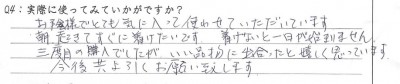 Q4：実際に使ってみていかがですか？
お陰様でとても気に入って使わせていただいています
朝起きてすぐに着けたいです　着けないと一日が始まりません
三度目の購入でしたが　いい品物に出会ったと嬉しく思っています
今後共よろしくお願い致します